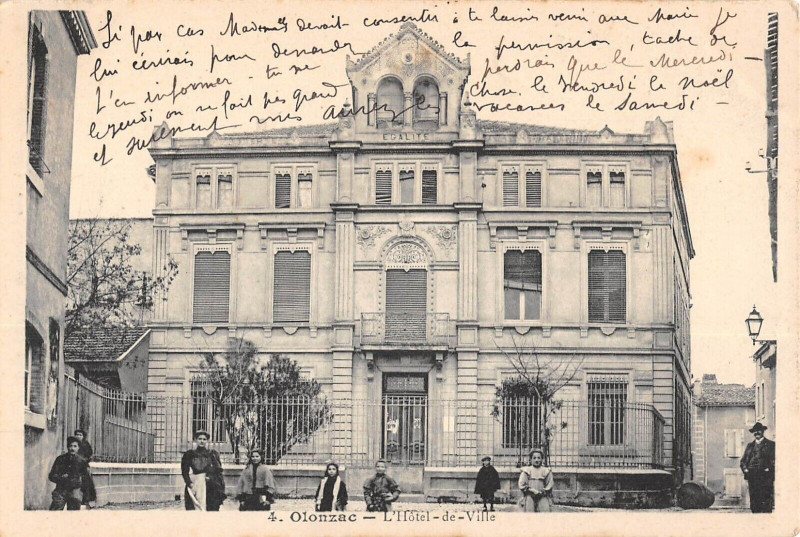 Si par cas Madame devait consentir à te laisser venir avec Marie je
lui écrirais pour demander la permission, tache de
t'en informer - tu ne perdrais que le Mercredi
le jeudi on ne fait pas grand chose, le Vendredi le Noël
et surement vacances le Samedi -
EGALITE
4. Olonzac — L'Hôtel-de-Ville